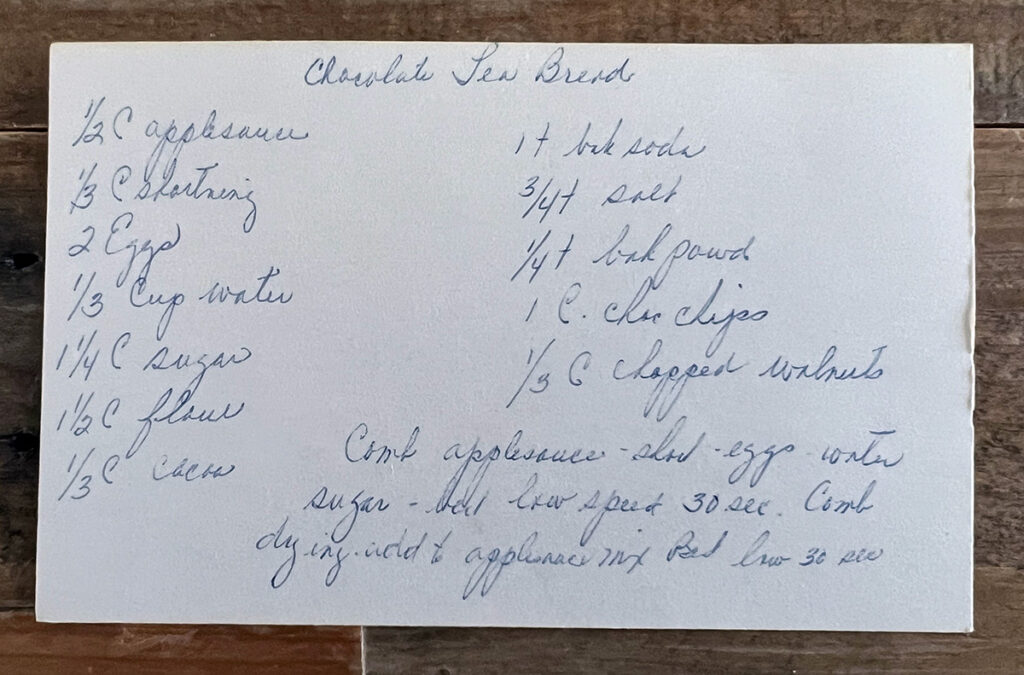 Chocolate Tea Bread
1/2 C applesauce
1/3 C shortning
2 Eggs
1/3 Cup water
1 1/4 C sugar
1 1/2 C flour
1/3 C cacoa
1 t bak soda
3/4 t salt
1/4 t bak powd
1 C. choc chips
1/3 C chopped walnuts
Comb applesauce - short - eggs - water
sugar - beat low speed 30 sec. Comb
dry ing. add to applesauce mix Beat low 30 sec